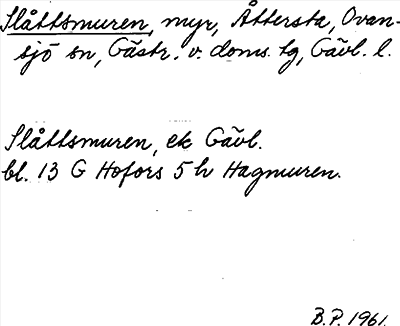 Slåttsmuren, myr, Åttersta, Ovan-
sjö sn, Gästr. v. doms. tg, Gävl. l.
Slåttsmuren, ek Gävl.
bl. 13 G Hofors 5 h Hagmuren.
B.P. 1961.